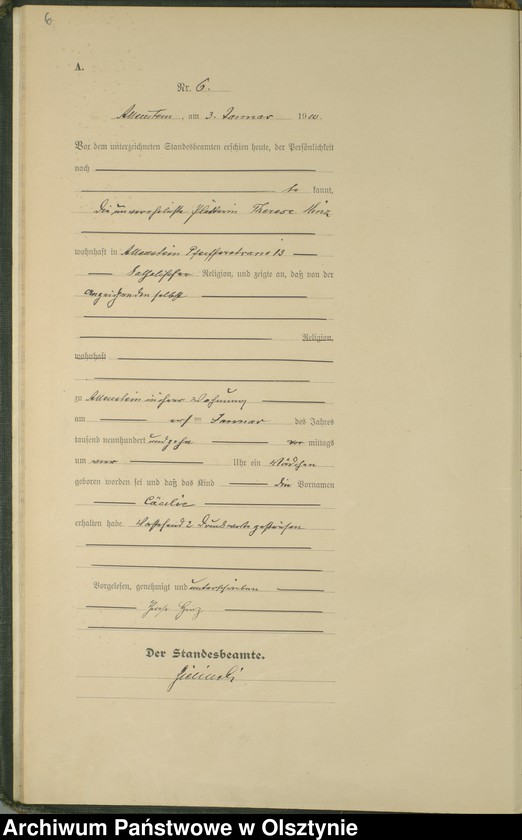 6
A.
Nr. 6.
Allenstein, am 3. Januar 1910.
Vor dem unterzeichneten Standesbeamten erschien heute, der Persönlichkeit
nach
be kannt,
die unverehelichte Plätterin Therese
wohnhaft in Allenstein Pfeifferstrasse 13
katholischer Religion, und zeigte an, daß von der
Anzeigenden selbst
Religion,
wohnhaft
zu Allenstein in ihrer Wohnung
am ersten Januar des Jahres
tausend neunhundert und zehn vor mittags
um vier Uhr ein Mädchen
geboren worden sei und daß das Kind den Vornamen
Cäcilie
erhalten habe. Vorstehend 2 Druckworte gestrichen
Vorgelesen, genehmigt und unterschrieben
Der Standesbeamte.
Archiwum Państwowe w Olsztynie